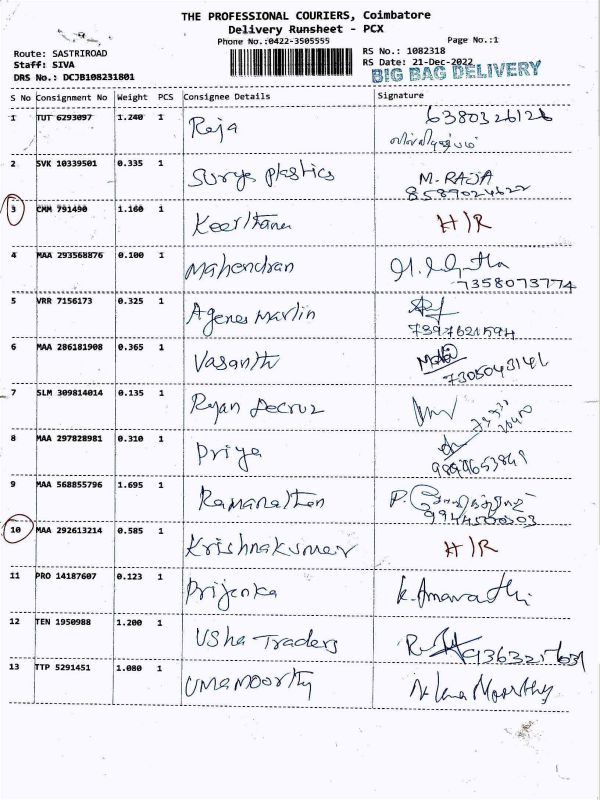 THE PROFESSIONAL COURIERS, Coimbatore
Delivery Runsheet - PCX
Phone No.:0422-3505555
Page No.:1
Route: SASTRIROAD
RS No.: 1082318
Staff: SIVA
RS Date: 21-Dec-2022
DRS No.: DCJB108231801
BIG BAG DELIVERY
S No Consignment No Weight PCS Consignee Details Signature
1 TUT 6293097 1.240 1 Raja 6380326126
2 SVK 10339501 0.335 1 Surya plastics M. RAJA
8589024622
3 CMM 791490 1.160 1 Keerthana H/R
4 MAA 293568876 0.100 1 Mahendran
7358073774
5 VRR 7156173 0.325 1 Agenes Marlin
7397621594
6 MAA 286181908 0.365 1 Vasanth
7305043141
7 SLM 309814014 0.135 1 Ryan Decruz
8 MAA 297828981 0.310 1 Priya
9 MAA 568855796 1.695 1 Ramanathan P.
10 MAA 292613214 0.585 1 Krishnakumar H/R
11 PRO 14187607 0.123 1 Prijenka K. Amaravathi
12 TEN 1950988 1.200 1 Usha Traders
13 TTP 5291451 1.080 1 Umamoorthy